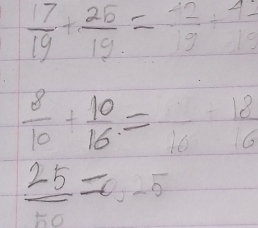 17/19 + 25/19 = 42/19
8/10 + 10/16 = /10 18/16
25/50 = 0,25